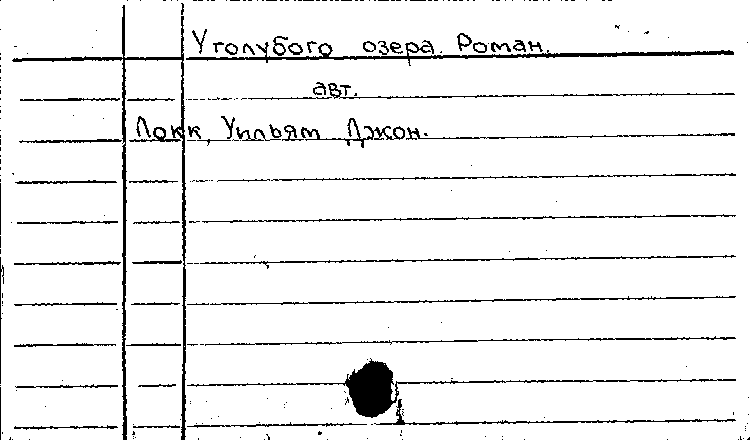 У голубого озера. Роман.
авт.
Локк, Уильям Джон.